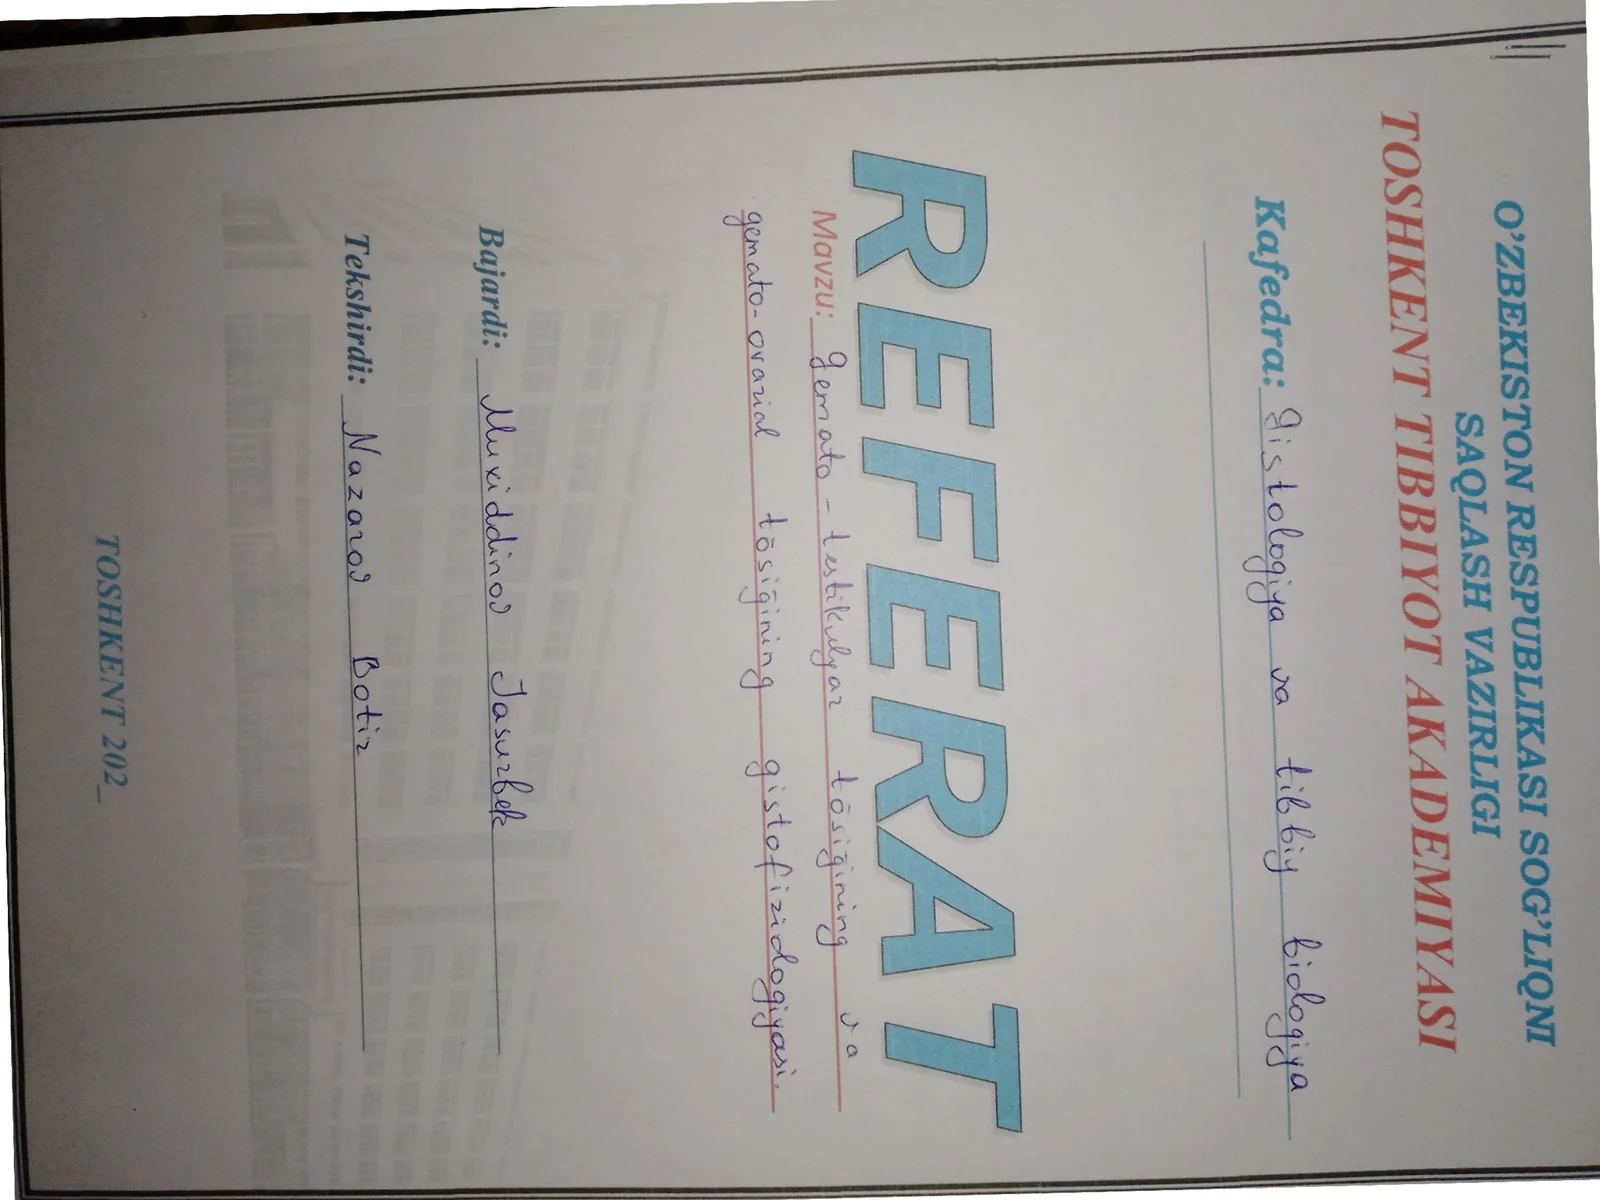 O'ZBEKISTON RESPUBLIKASI SOG'LIQNI
SAQLASH VAZIRLIGI
TOSHKENT TIBBIYOT AKADEMIYASI
Kafedra: gistologiya va tibbiy biologiya
REFERAT
Mavzu: gemato-testikulyar tōsiğining va
gemato-ovarial tōsiğining gistofiziologiyasi.
Bajardi: Muxiddinov Jasurbek
Tekshirdi: Nazarov Botir
TOSHKENT 202_